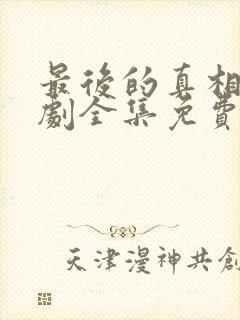 最後的真相
劇全集免費
天津漫神共創